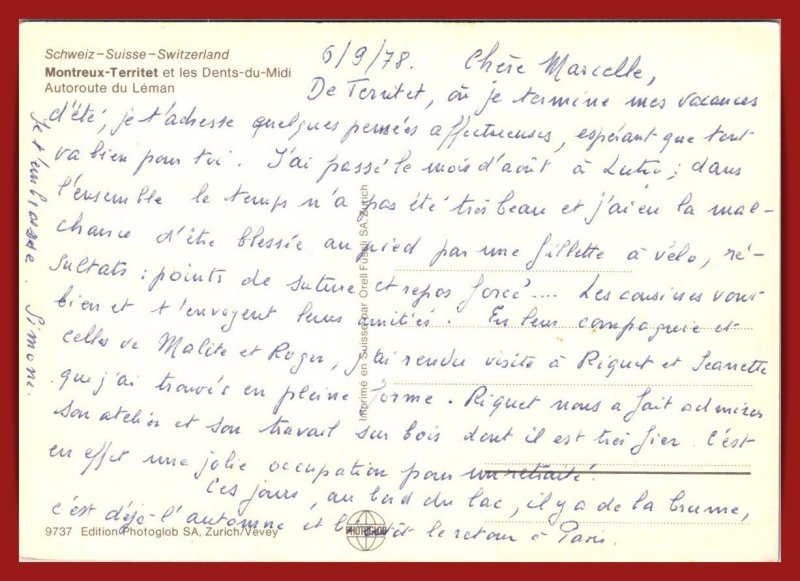 Schweiz – Suisse – Switzerland
Montreux-Territet et les Dents-du-Midi
Autoroute du Léman
6/9/78. Chère Marcelle,
De Territet, où je termine mes vacances
d'été, je t'adresse quelques pensées affectueuses, espérant que tout
va bien pour toi. J'ai passé le mois d'août à Lutry; dans
l'ensemble le temps n'a pas été très beau et j'ai eu la mal-
chance d'être blessée au pied par une fillette à vélo, ré-
sultats : points de suture et repos forcé.... Les cousines vont
bien et t'envoyent leurs amitiés. En leur compagnie et
celles de Malite et Roger, j'ai rendu visite à Riquet et Jeanette
que j'ai trouvés en pleine forme. Riquet nous a fait admirer
son atelier et son travail sur bois dont il est très fier. C'est
en effet une jolie occupation pour un retraité.
Ces jours, au bord du lac, il y a de la brume,
c'est déjà l'automne et bientôt le retour à Paris.
Je t'embrasse. Simone.
Imprimé en Suisse par Orell Füssli SA, Zurich
9737 Edition Photoglob SA, Zurich/Vevey
PHOTOGLOB